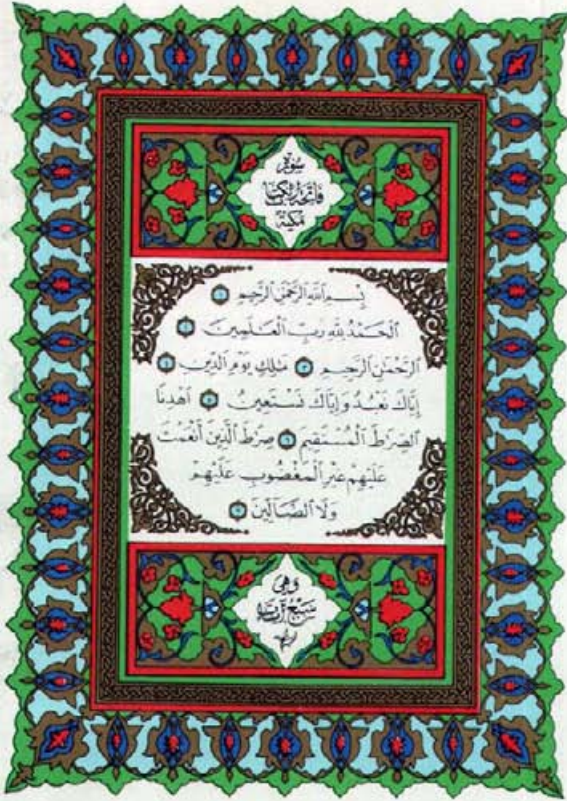 سُورَة
فَاتِحَةُ الْكِتَابِ
مَكِّيَّة
بِسْمِ ٱللَّهِ ٱلرَّحْمَٰنِ ٱلرَّحِيمِ ١
ٱلْحَمْدُ لِلَّهِ رَبِّ ٱلْعَٰلَمِينَ ٢
ٱلرَّحْمَٰنِ ٱلرَّحِيمِ ٣ مَٰلِكِ يَوْمِ ٱلدِّينِ ٤
إِيَّاكَ نَعْبُدُ وَإِيَّاكَ نَسْتَعِينُ ٥ ٱهْدِنَا
ٱلصِّرَٰطَ ٱلْمُسْتَقِيمَ ٦ صِرَٰطَ ٱلَّذِينَ أَنْعَمْتَ
عَلَيْهِمْ غَيْرِ ٱلْمَغْضُوبِ عَلَيْهِمْ
وَلَا ٱلضَّآلِّينَ ٧
وَهِيَ
سَبْعُ آيَات